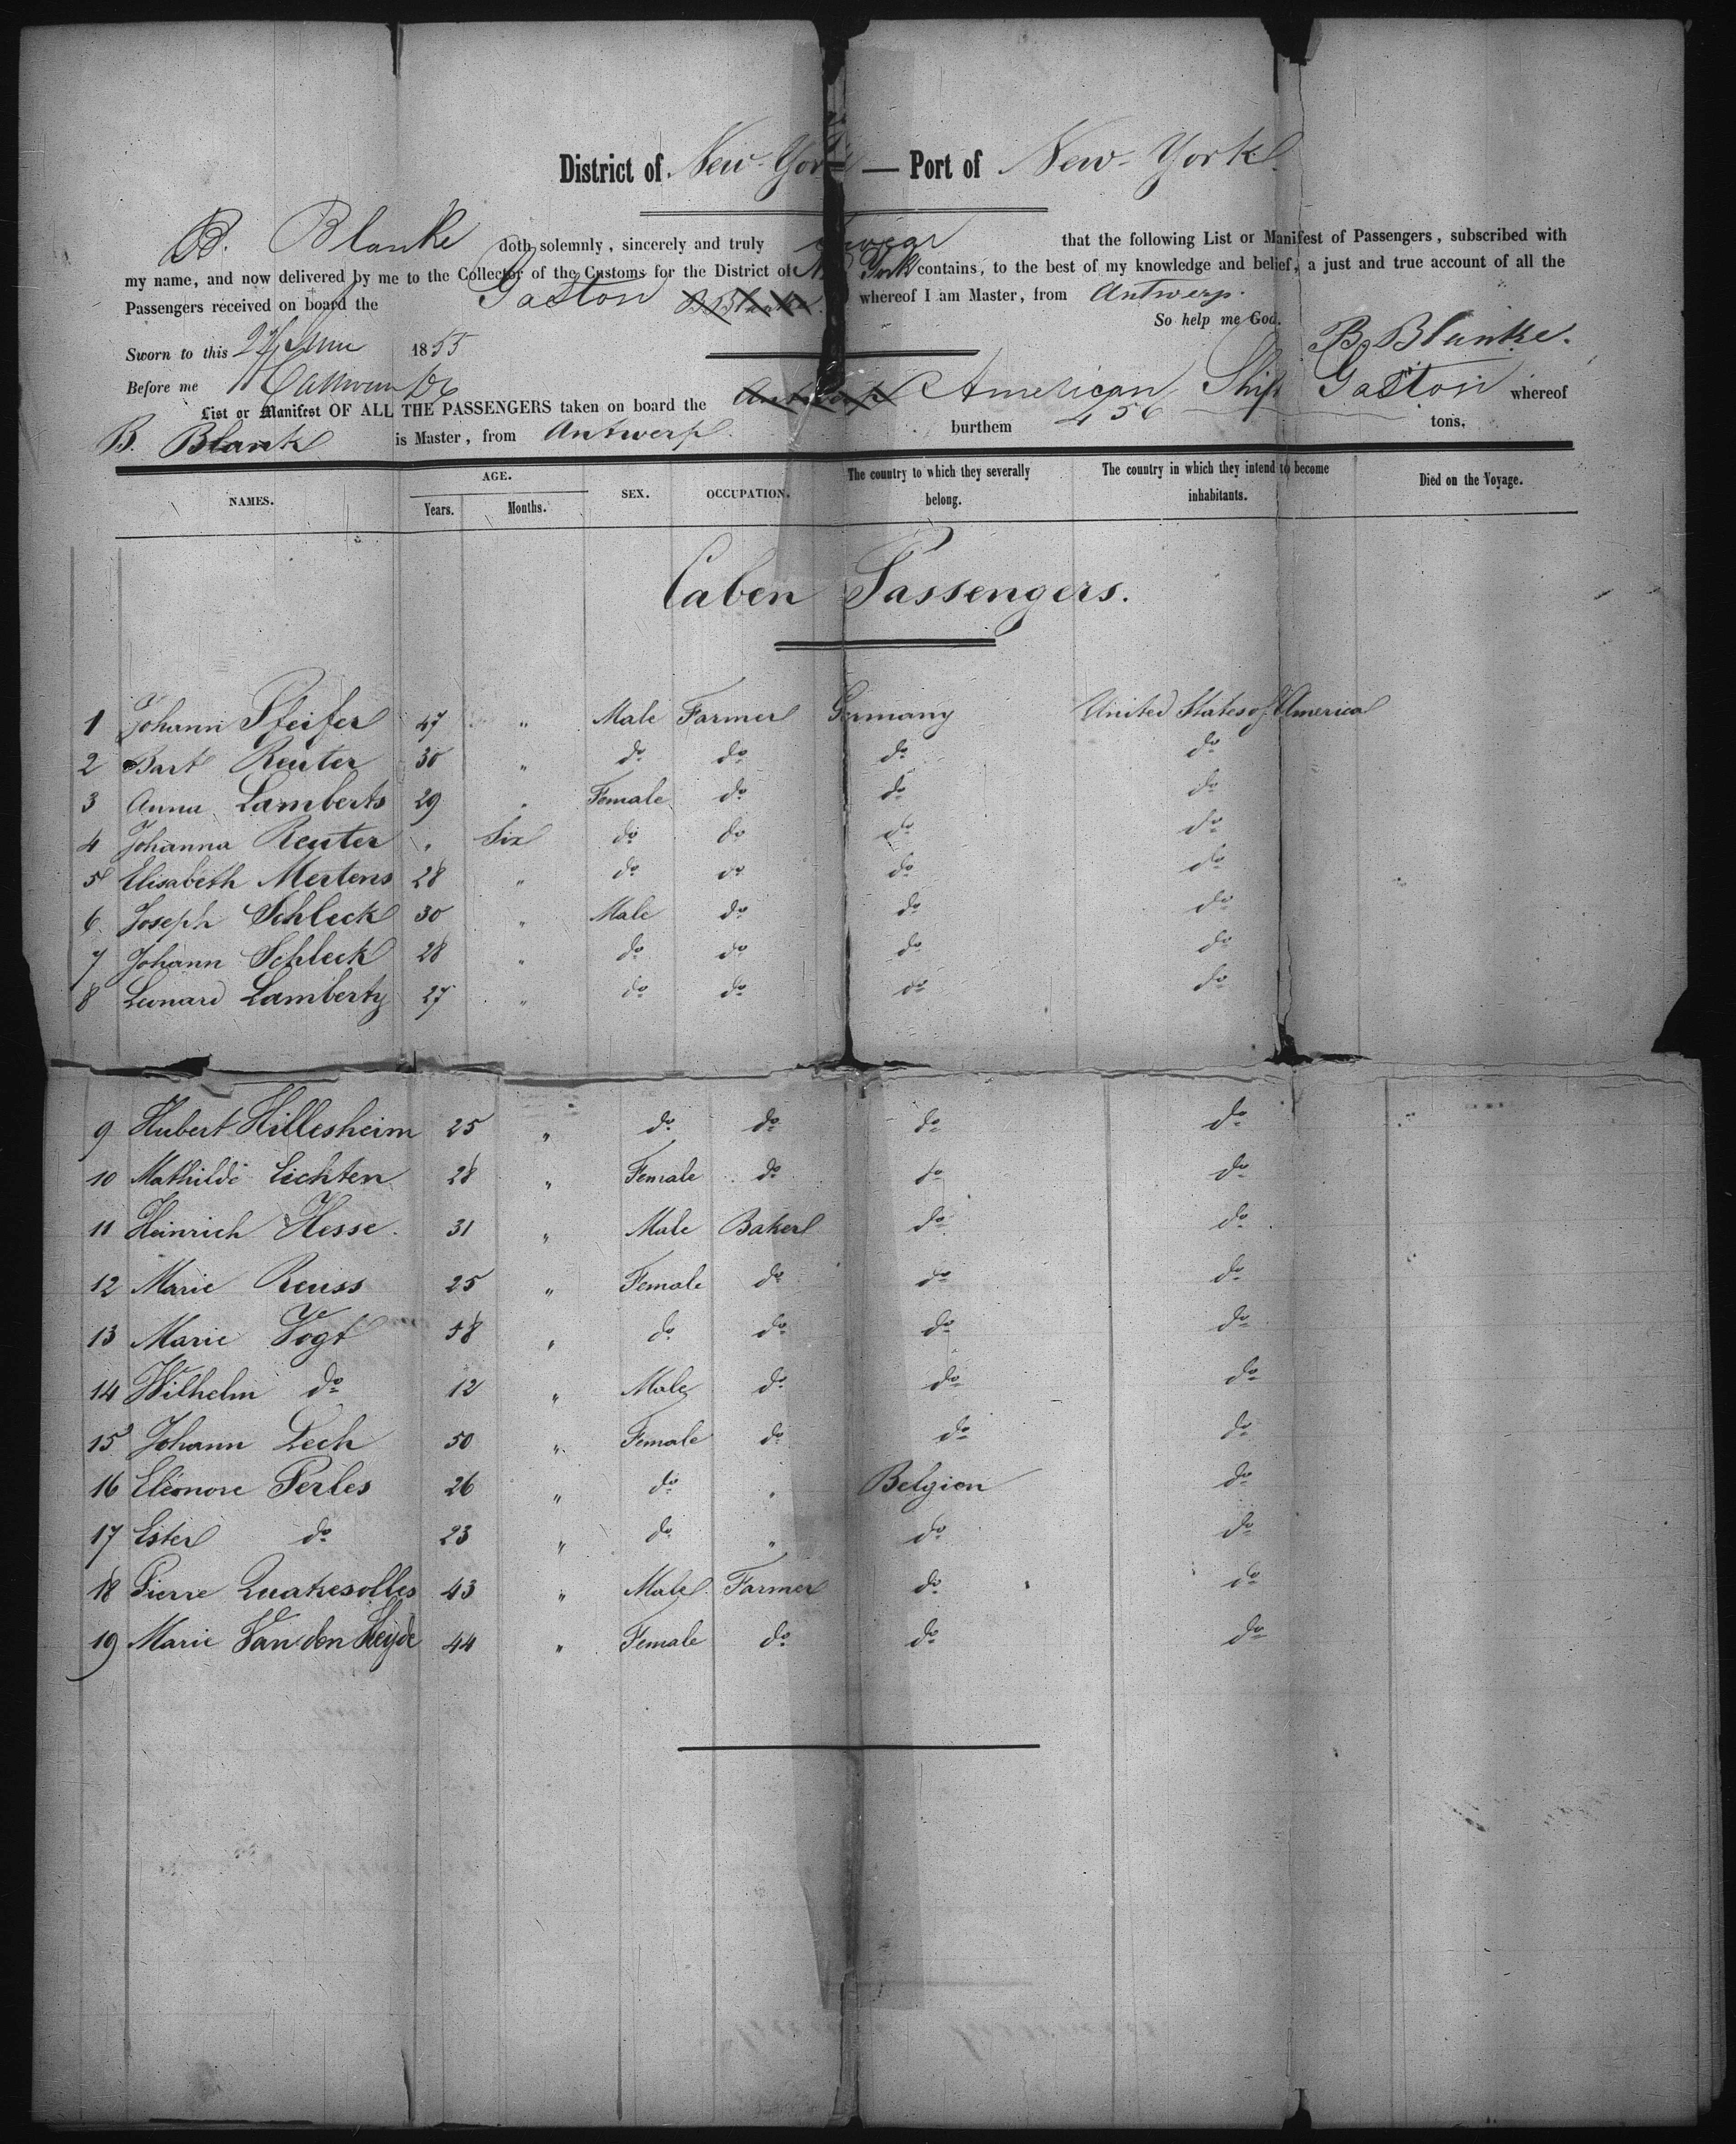 District of New-York — Port of New-York.
B. Blanke doth solemnly, sincerely and truly swear that the following List or Manifest of Passengers, subscribed with
my name, and now delivered by me to the Collector of the Customs for the District of New York contains, to the best of my knowledge and belief, a just and true account of all the
Passengers received on board the Gaston B Blanke. whereof I am Master, from Antwerp.
So help me God.
Sworn to this 27 June 1855 B. Blanke.
Before me
List or Manifest OF ALL THE PASSENGERS taken on board the Antwerp American Ship Gaston whereof
B. Blank is Master, from Antwerp burthem 456 tons.
NAMES. AGE. Years. Months. SEX. OCCUPATION. The country to which they severally belong. The country in which they intend to become inhabitants. Died on the Voyage.
Caben Passengers.
1 Johann Pfeifer 47 " Male Farmer Germany United States of America
2 Bart Reuter 30 " do do do do
3 Anna Lamberts 29 " Female do do do
4 Johanna Reuter " Six do do do do
5 Elisabeth Mertens 28 " do do do do
6 Joseph Schleck 30 " Male do do do
7 Johann Schleck 28 " do do do do
8 Leonard Lamberty 27 " do do do do
9 Hubert Hillesheim 25 " do do do do
10 Mathilde Lichten 28 " Female do do do
11 Heinrich Hesse. 31 " Male Baker do do
12 Marie Reuss 25 " Female do do do
13 Marie Vogt 58 " do do do do
14 Wilhelm do 12 " Male do do do
15 Johann Lech 50 " Female do do do
16 Eleonore Perles 26 " do " Belgien do
17 Ester do 23 " do " do do
18 Pierre Quatresolles 43 " Male Farmer do do
19 Marie Van den Heyde 44 " Female do do do